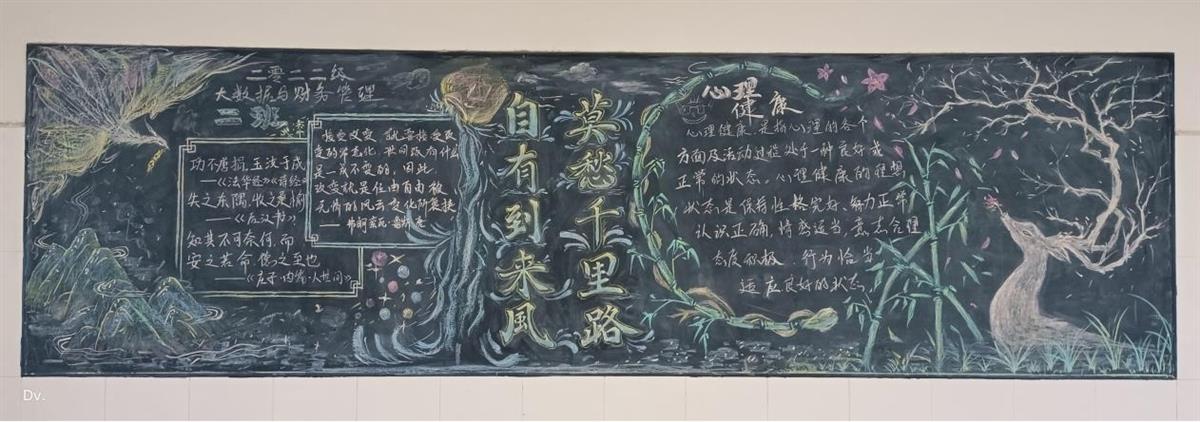 二零二二级
大数据与财务管理
二班
功不唐捐,玉汝于成
——《法华经》《诗经》
失之东隅,收之桑榆
——《后汉书》
知其不可奈何,而
安之若命,德之至也
——《庄子·内篇·人世间》
接受改变,就要接受改
变的常态化,世间没有什么
是一成不变的,因此
改变就是任由自由被
无情的风云变化所裹挟
莫愁千里路
自有到来风
心理
健康
心理健康是指心理的各个
方面及活动过程处于一种良好或
正常的状态。心理健康的理想
状态是保持性格完好、智力正常
认识正确,情感适当,意志合理
态度积极、行为恰当
适应良好的状态。
Dv.